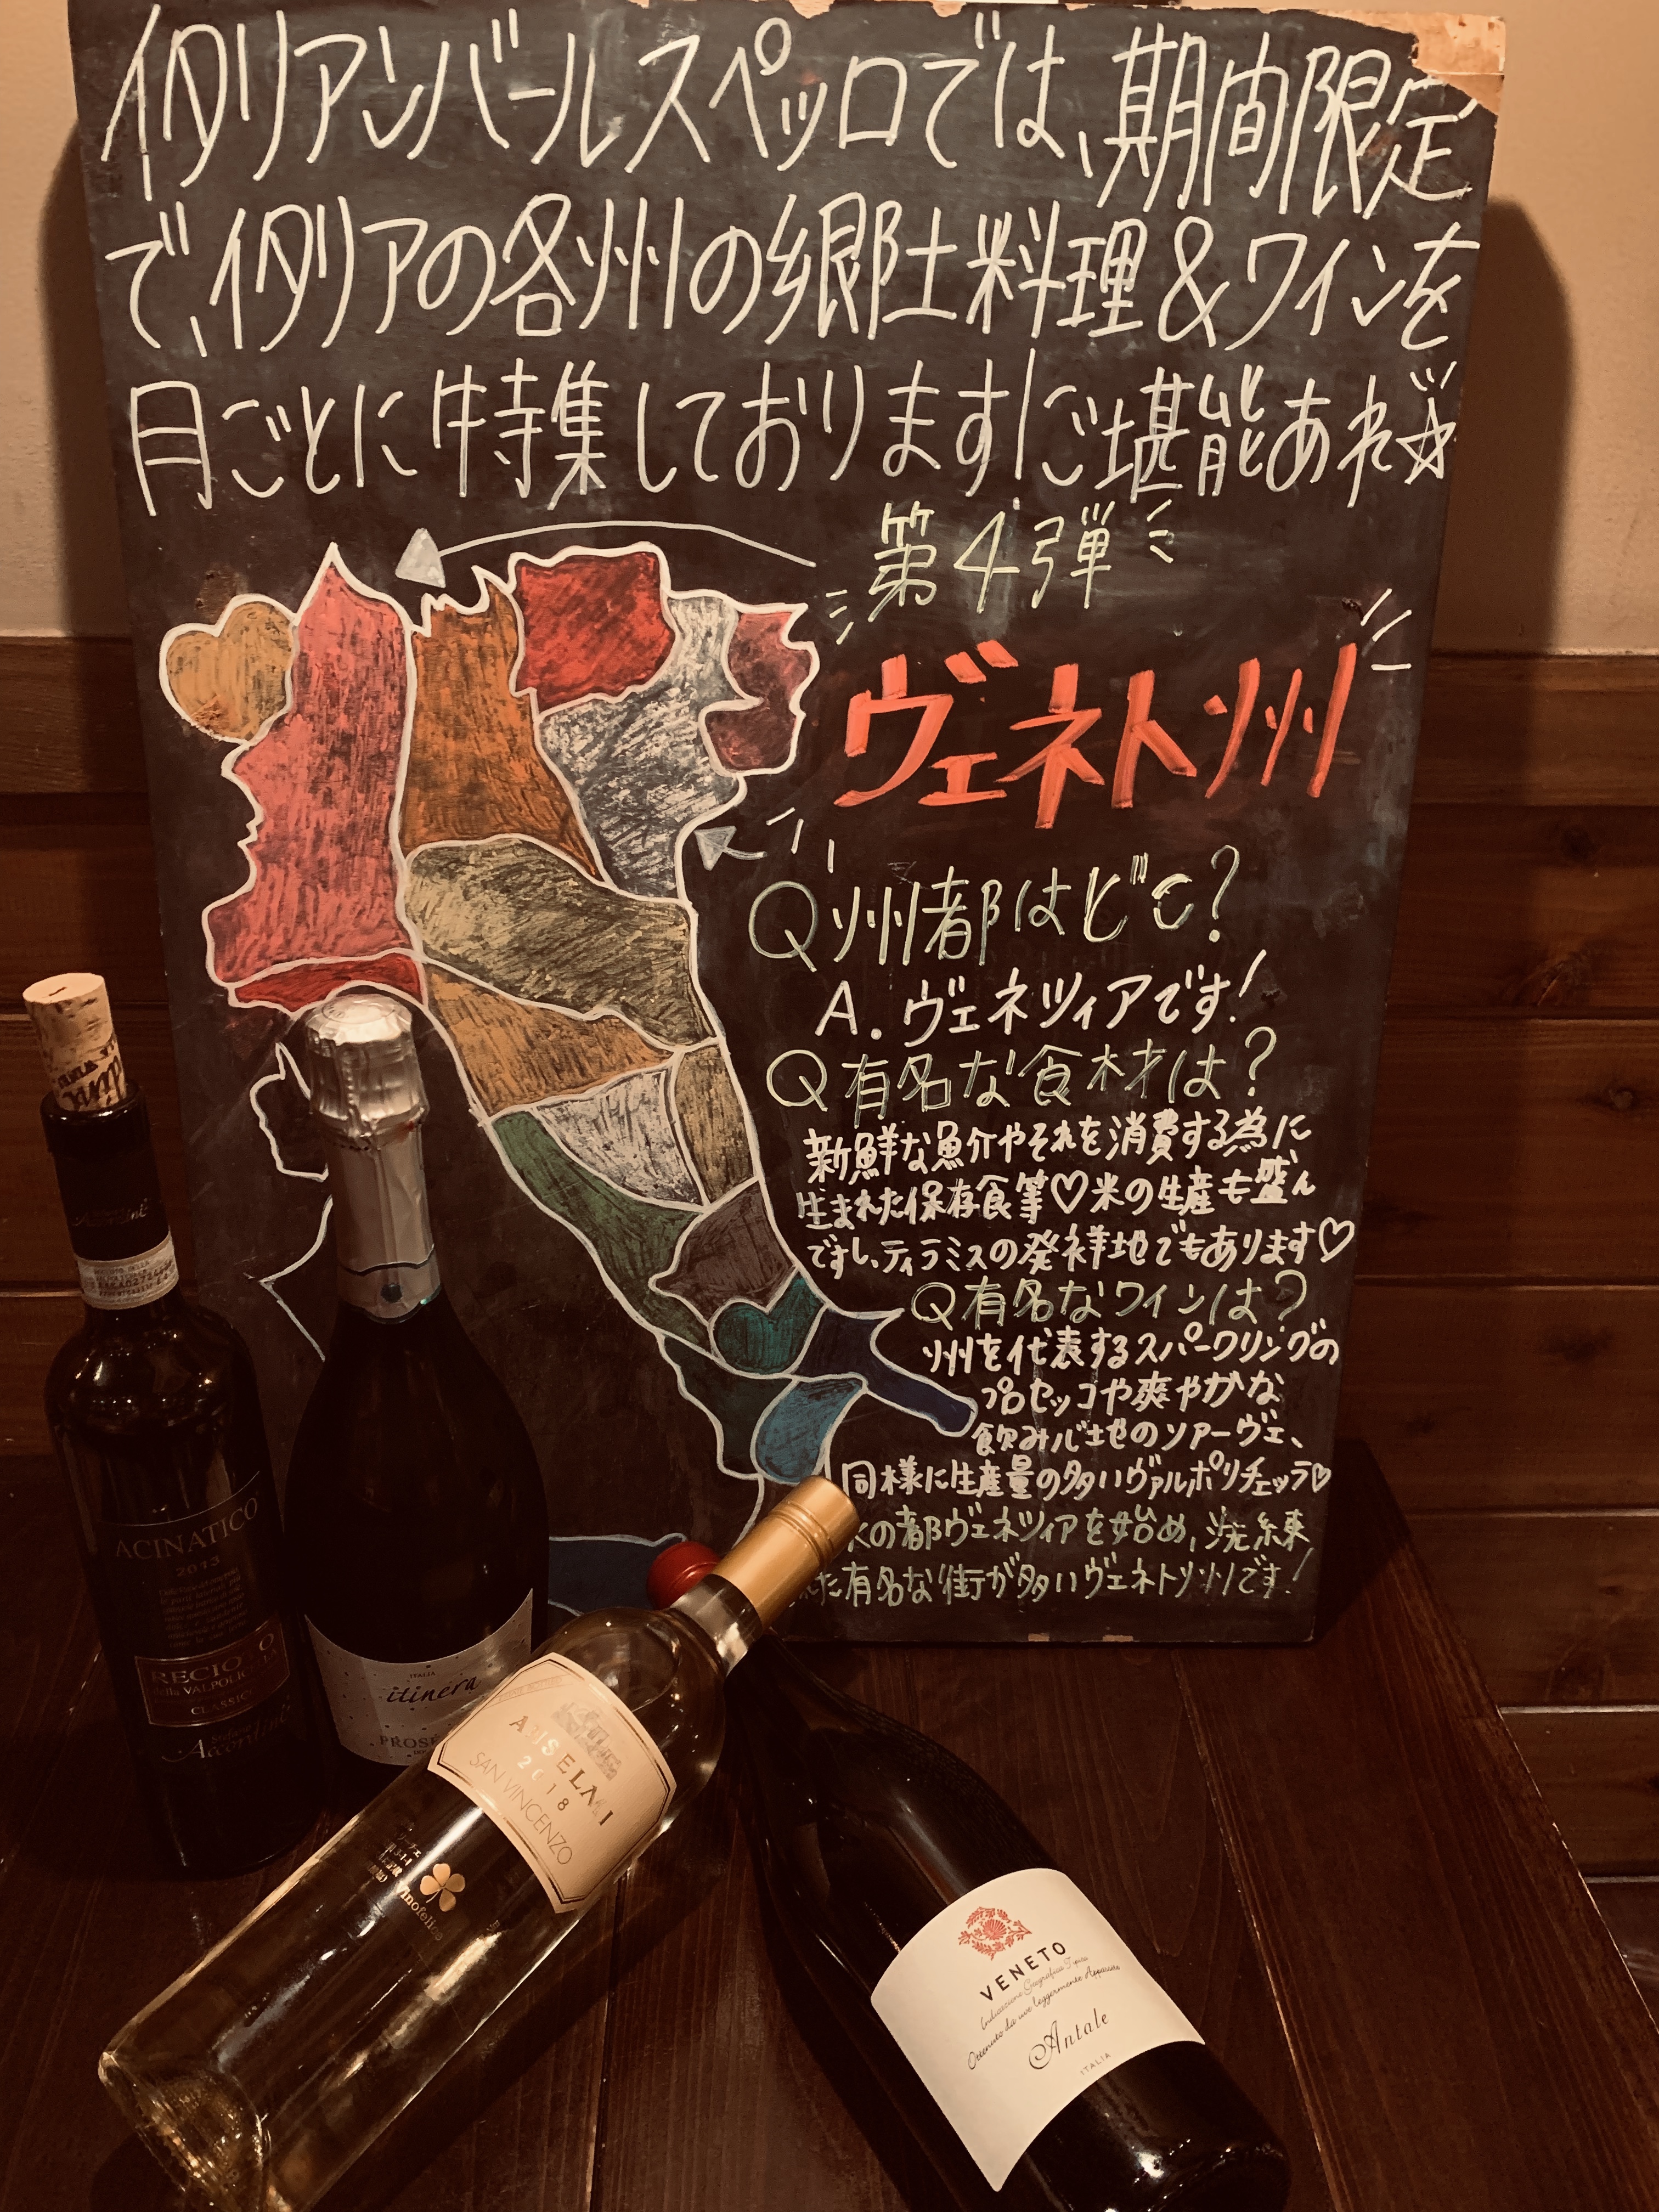 イタリアンバールスペッロでは、期間限定
で、イタリアの各州の郷土料理&ワインを
月ごとに特集しております!ご堪能あれ☆
第4弾
ヴェネト州
Q州都はどこ?
A.ヴェネツィアです!
Q有名な食材は?
新鮮な魚介やそれを消費する為に
生まれた保存食等♡米の生産も盛ん
ですし、ティラミスの発祥地でもあります♡
Q有名なワインは?
州を代表するスパークリングの
プロセッコや爽やかな
飲み心地のソアーヴェ、
同様に生産量の多いヴァルポリチェッラ♡
の都ヴェネツィアを始め、洗練
た有名な街が多いヴェネト州です!
ACINATICO
2013
RECIO O
della VALPOLICELLA
CLASSICO
Accordini
ITALIA
itinera
PROSE
ANSELMI
2018
SAN VINCENZO
Vinofelice
VENETO
Indicazione Geografica Tipica
Ottenuto da uve leggermente Appassite
Antale
ITALIA